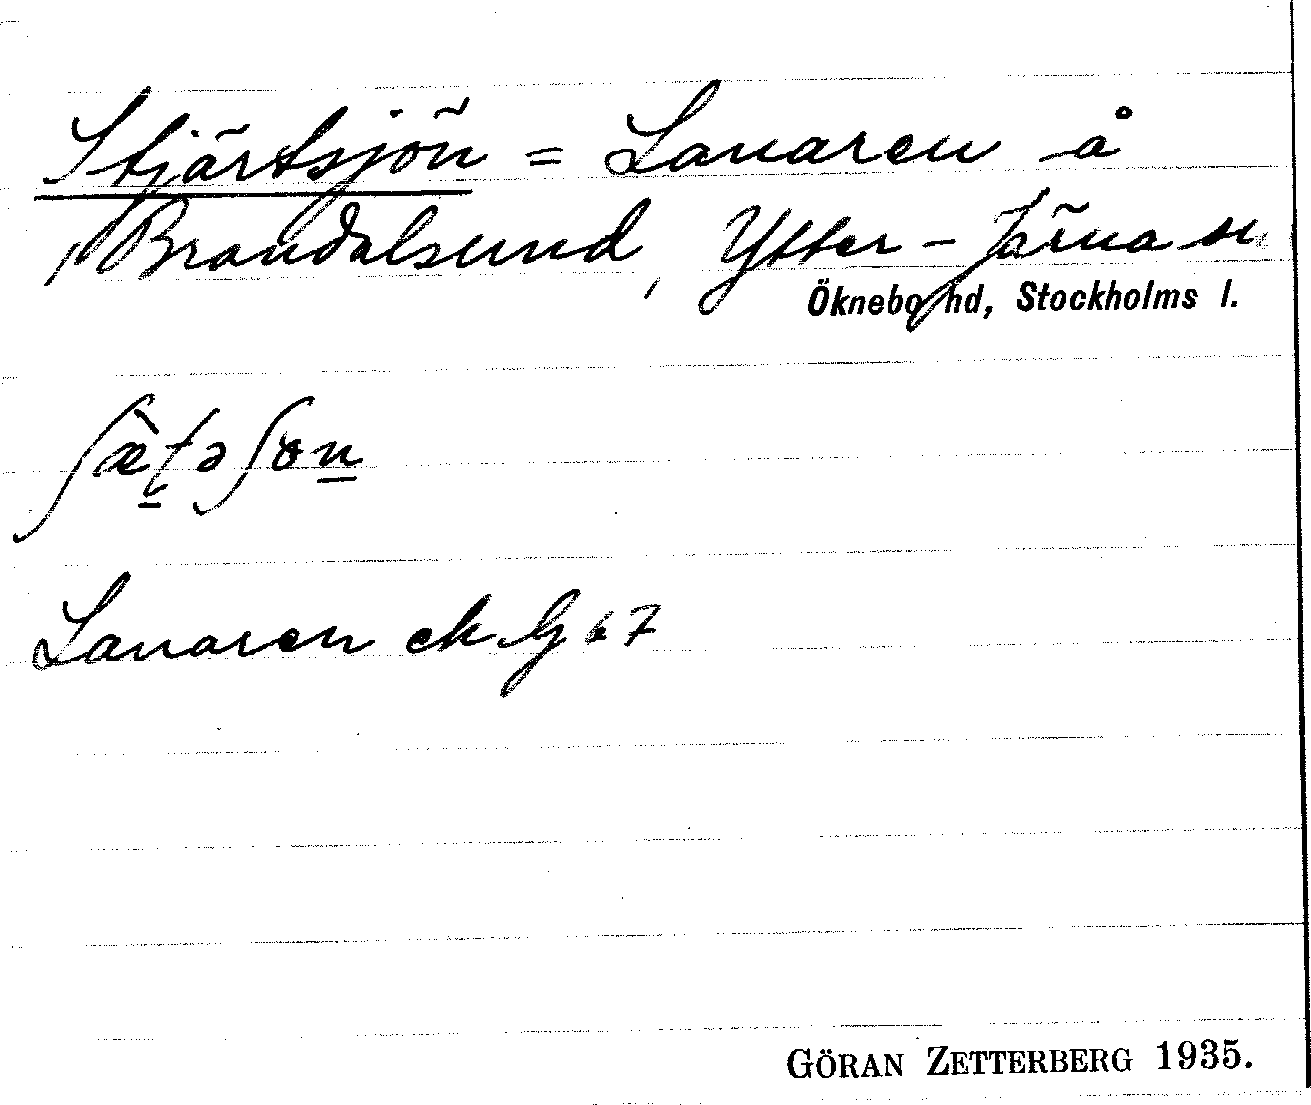 Stjärtsjön = Lanaren å
Brandalsund, Ytter-Järna sn
Öknebo hd, Stockholms l.
Lanaren ek
GÖRAN ZETTERBERG 1935.